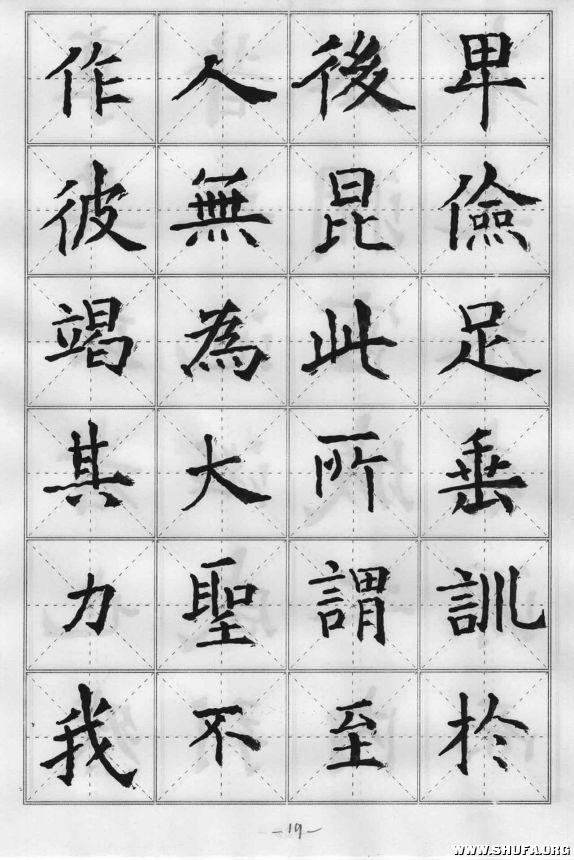 卑儉足垂訓於
後昆此所謂至
人無為大聖不
作彼竭其力我
-19-
WWW.SHUFA.ORG